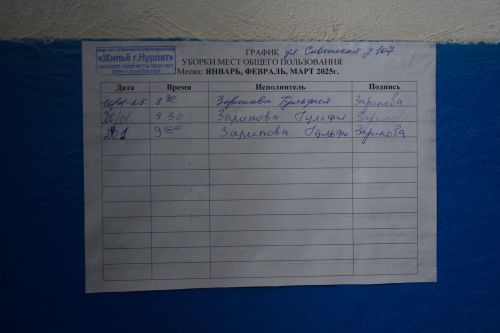 «Жильё г.Нурлат»
ГРАФИК ул Советская д 107
УБОРКИ МЕСТ ОБЩЕГО ПОЛЬЗОВАНИЯ
Месяц: ЯНВАРЬ, ФЕВРАЛЬ, МАРТ 2025г.
Дата Время Исполнитель Подпись
8 Зарипова Гульфия Зарипова
20/01 9 30 Зарипова Гульфия Зарипова
9 00 Зарипова Гульфия Зарипова